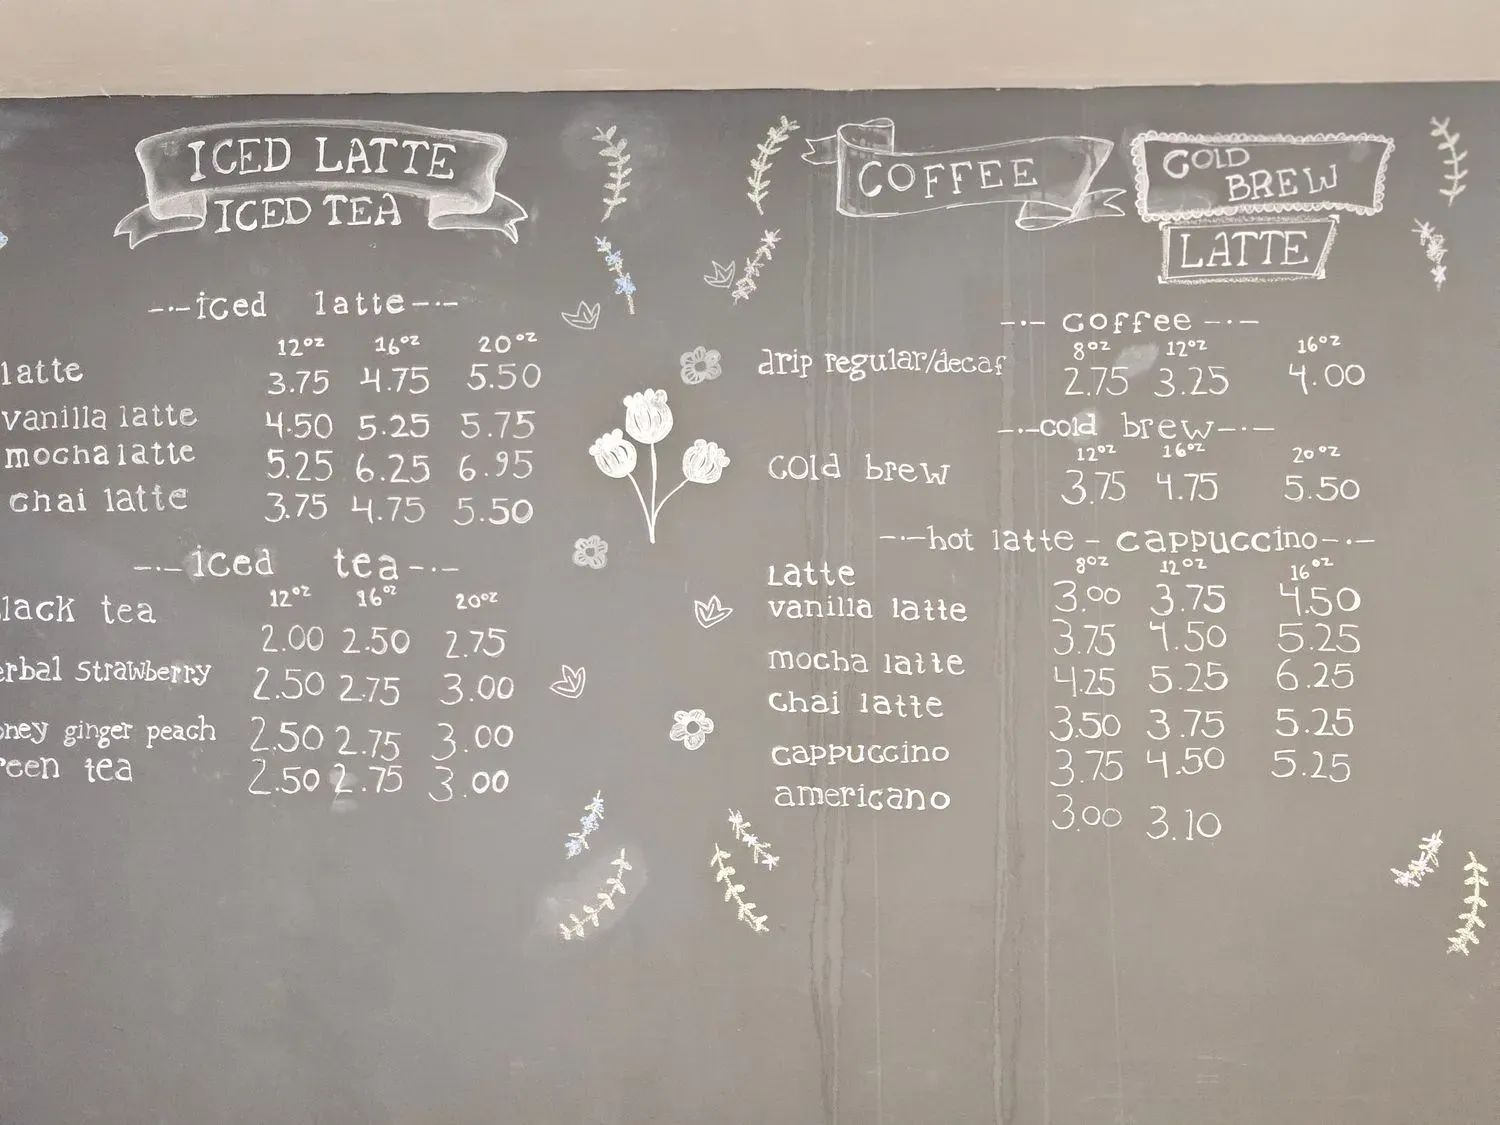 ICED LATTE
ICED TEA
iced latte
12oz 16oz 20oz
latte 3.75 4.75 5.50
vanilla latte 4.50 5.25 5.75
mocha latte 5.25 6.25 6.95
chai latte 3.75 4.75 5.50
iced tea
12oz 16oz 20oz
lack tea 2.00 2.50 2.75
erbal strawberry 2.50 2.75 3.00
oney ginger peach 2.50 2.75 3.00
reen tea 2.50 2.75 3.00
COFFEE
COLD
BREW
LATTE
coffee
8oz 12oz 16oz
drip regular/decaf 2.75 3.25 4.00
cold brew
12oz 16oz 20oz
cold brew 3.75 4.75 5.50
hot latte - cappuccino
8oz 12oz 16oz
Latte 3.00 3.75 4.50
vanilla latte 3.75 4.50 5.25
mocha latte 4.25 5.25 6.25
chai latte 3.50 3.75 5.25
cappuccino 3.75 4.50 5.25
americano 3.00 3.10